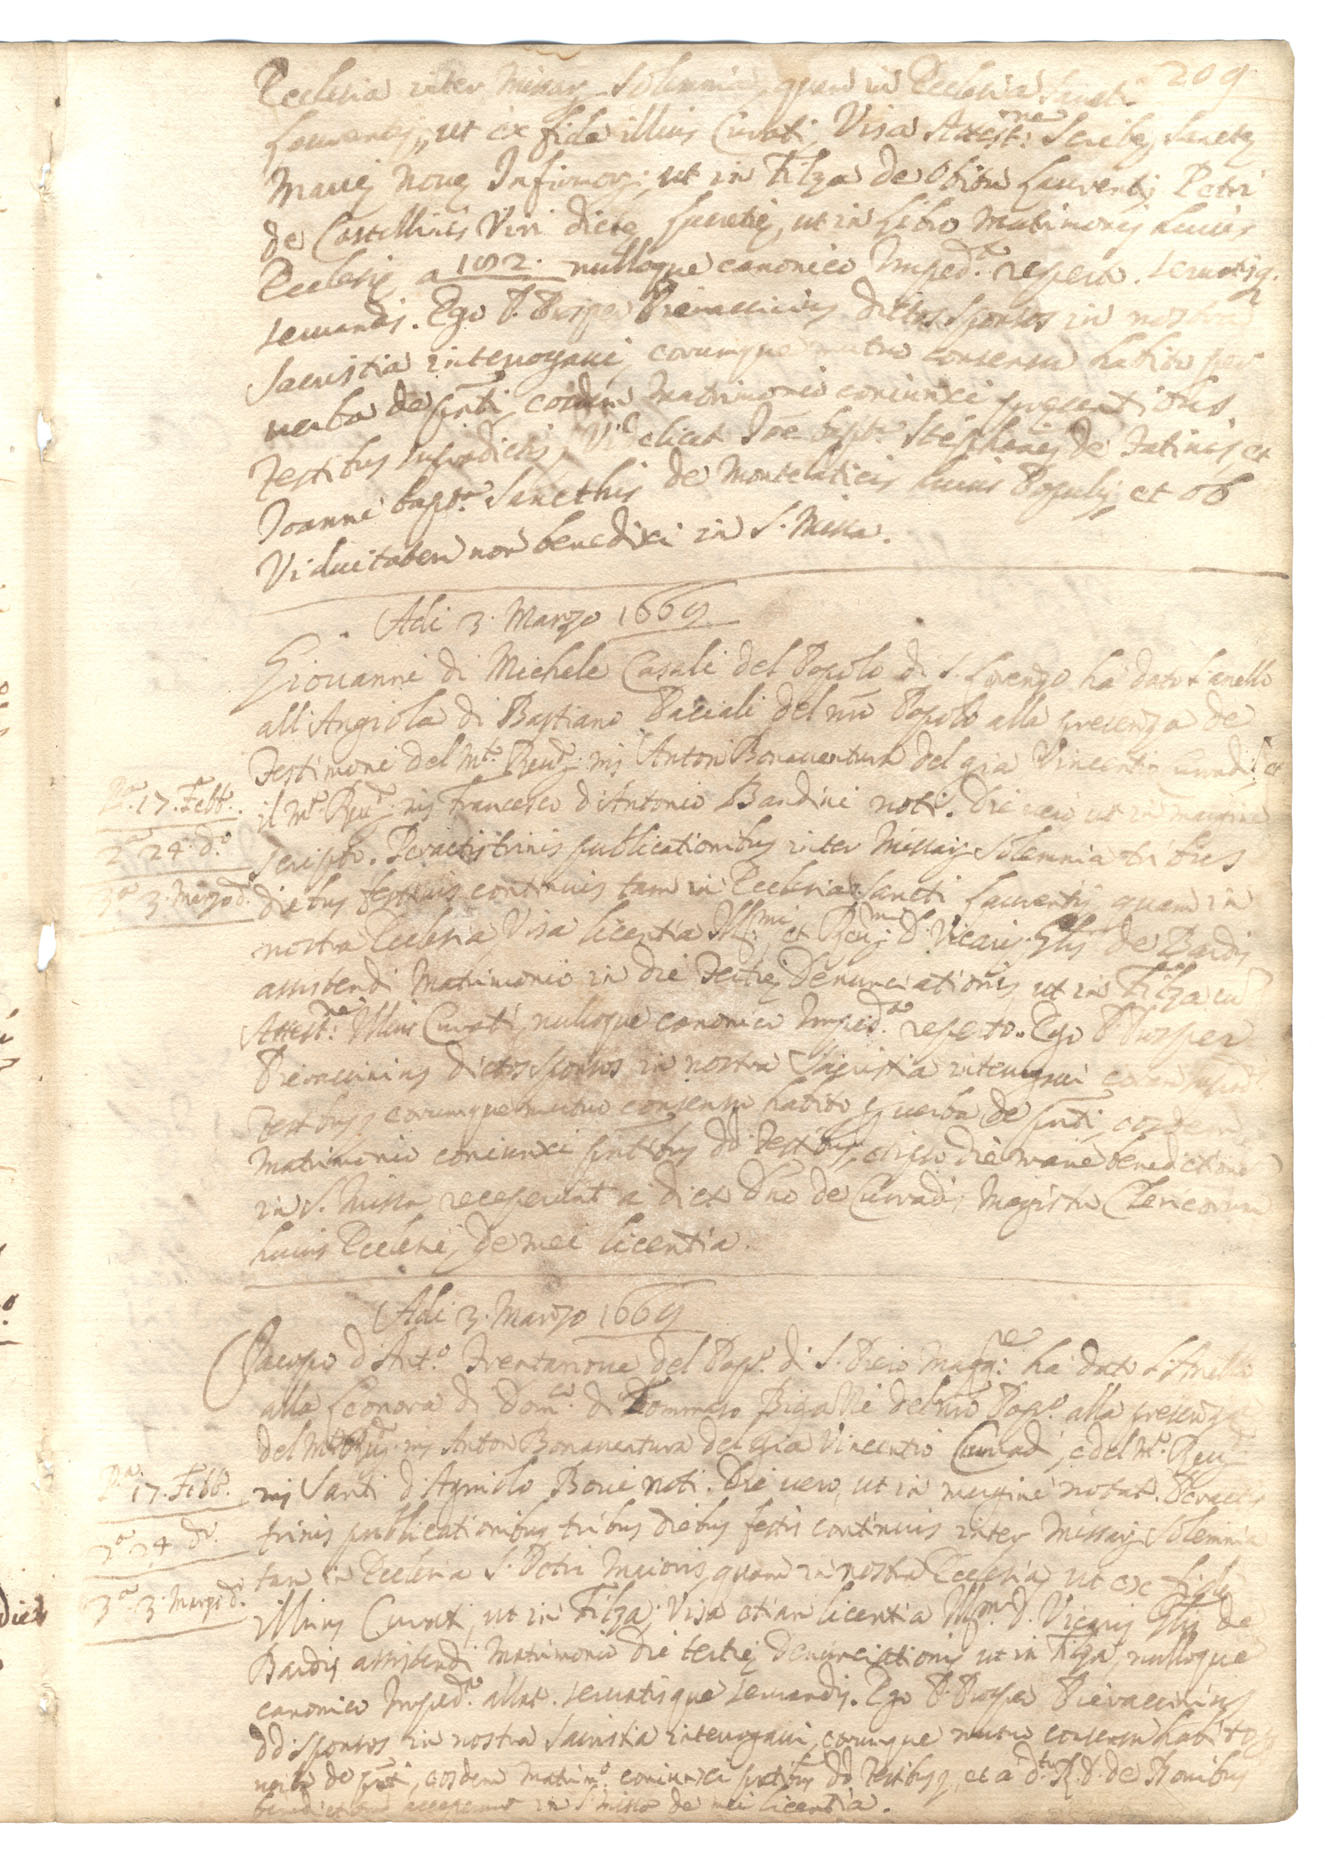 209
Ecclesia inter Missarũ Solemnia, quam in Ecclesia Sancti
Laurentij, ut ex fide illius Curati, Visa Attest:ne Scribę Sanctę
Marię Nouę Infirmorũ, ut in Filza de Obitu Laurentij Petri
de Castellinis Viri dictę Lucretię, ut in Libro Matrimonij huius
Ecclesię a nulloque canonico Imped.to reperto. seruatisq.
seruandis. Ego P. Prosper Pieraccinius dictos sponsos in nostra
Sacristia interrogaui, eorumque mutuo consensu habito per
uerba de pñti, eosdem Matrimonio coniunxi presentibus
Testibus infradictis, Vi.d.elicet Ioe bapt.a Stephani de Tatinis, et
Joanne bapt.a Sanethis de Montelaticis huius Populi, et ob
Viduitatem non benedixi in S. Missa.
Adi 3. Marzo 1669
Giouanni di Michele Casali del Popolo di S. Lorenzo ha dato l'anello
all'Angiola di Bastiano Paciali del nrõ Popolo alla presenza de
Testimoni del M.to Reu.do mes Anton Bonauentura del gia Vincentio Currad. et
P.a 17. Febb.o
il M.to Reu.do mes Francesco d'Antonio Bandini noti. Die uero ut in margine
2.a 24. d.o
scripto. Peractis trinis publicationibus inter Missarũ Solemnia tribus
3.a 3. Marzo d.o
diebus festiuis continuis tam in Ecclesia Sancti Laurentij, quam in
nostra Ecclesia Visa licentia Ill.mi et Reu.mi D. Vicarij Glis de Bardis
assistendi Matrimonio in die Tertię Denunciationis, ut in Filza cũ
Attest.ne Illius Curati, nulloque canonico Imped.to reperto. Ego P. Prosper
Pieraccinius dictos sponsos in nostra Sacristia interrogaui coram
testibus, eorumque mutuo consensu habito p uerba de pñti, eosdem
Matrimonio coniunxi pñtibus dd. Testibus, et ipso die mane benedictione
in S. Missa receperunt a dicto Dño de Curradi Magistro Clericorum
huius Ecclesię, de mei licentia.
Adi 3. Marzo 1669
Jacopo d'Ant.o Trentanoue del Pop.o di S. Piero Magg.re ha dato l'Anello
alla Leonora di Dom.co di Tommaso Bigalli del nrõ Pop.o alla presenza
del M.to Reu.do mes Anton Bonauentura del gia Vincentio Currad, e del M.to Reu.do
P.a 17. Febb.o
mes Santi d'Agniolo Boni noti. Die uero, ut in margine notat. Peractis
2.a 24. d.o
trinis publicationibus tribus diebus festis continuis inter Missarũ Solemnia
3.a 3. Marzo d.o
tam in Ecclesia S. Petri Maioris, quam in nostra Ecclesia, ut ex fide
illius Curati, ut in Filza, Visa etiam licentia Ill.mi D. Vicarij Glis de
Bardis assistendi Matrimonio die tertię denunciationis ut in Filza, nulloque
canonico Imped.to allat. seruatisque seruandis. Ego P. Prosper Pieraccinius
dd. sponsos in nostra Sacristia interrogaui, eorumque mutuo consensu habito p
uerba de pñti, eosdem Matrim.o coniunxi pñtibus dd. Testibus, et a d.to R. D. de Bonibus
benedictione acceperunt in S. Missa de mei licentia.